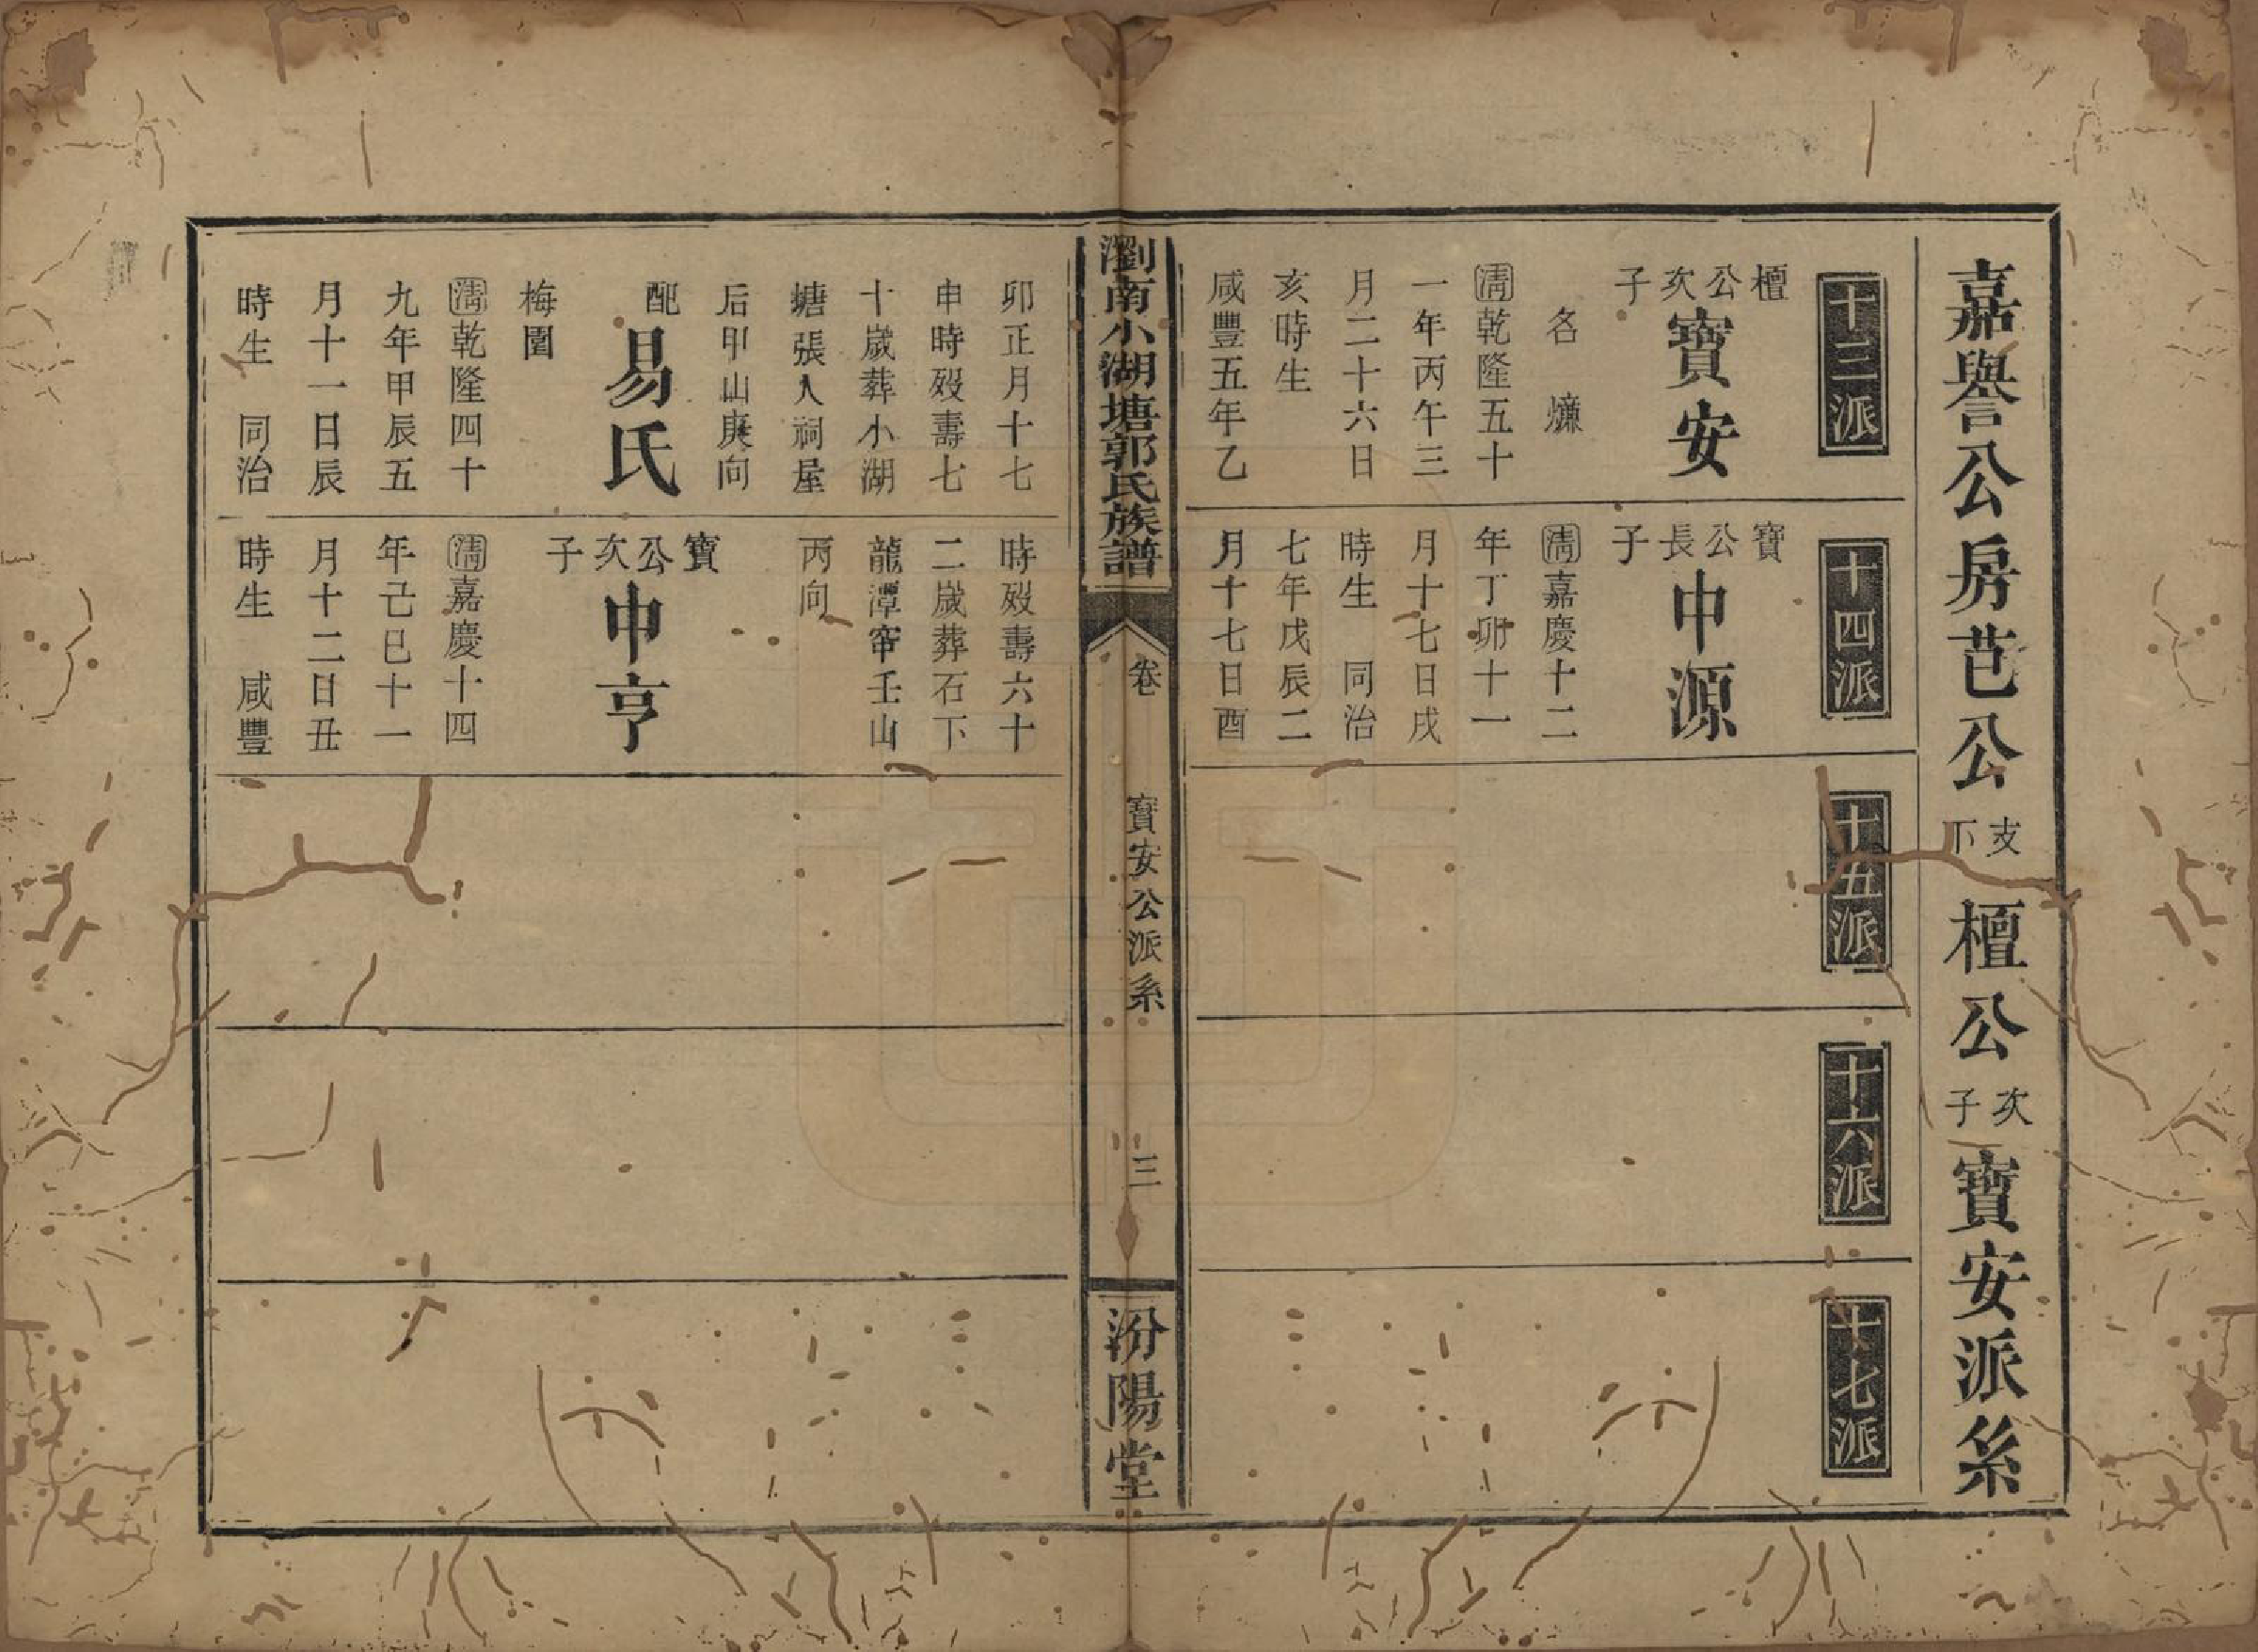 嘉譽公房芑公支下檀公次子寶安派系
十三派
檀公次子
寶安
名㷿
清乾隆五十
一年丙午三
月二十六日
亥時生
咸豐五年乙
十四派
寶公長子
中源
清嘉慶十二
年丁卯十一
月十七日戌
時生　同治
七年戊辰二
月十七日酉
十五派
十六派
十七派
瀏南小湖塘郭氏族譜
卷
寶安公派系
三
汾陽堂
卯正月十七
申時歿壽七
十歲葬小湖
塘張人祠屋
后甲山庚向
配
易氏
梅園
清乾隆四十
九年甲辰五
月十一日辰
時生　同治
時歿壽六十
二歲葬石下
龍潭窂壬山
丙向
寶公次子
中亨
清嘉慶十四
年己巳十一
月十二日丑
時生　咸豐